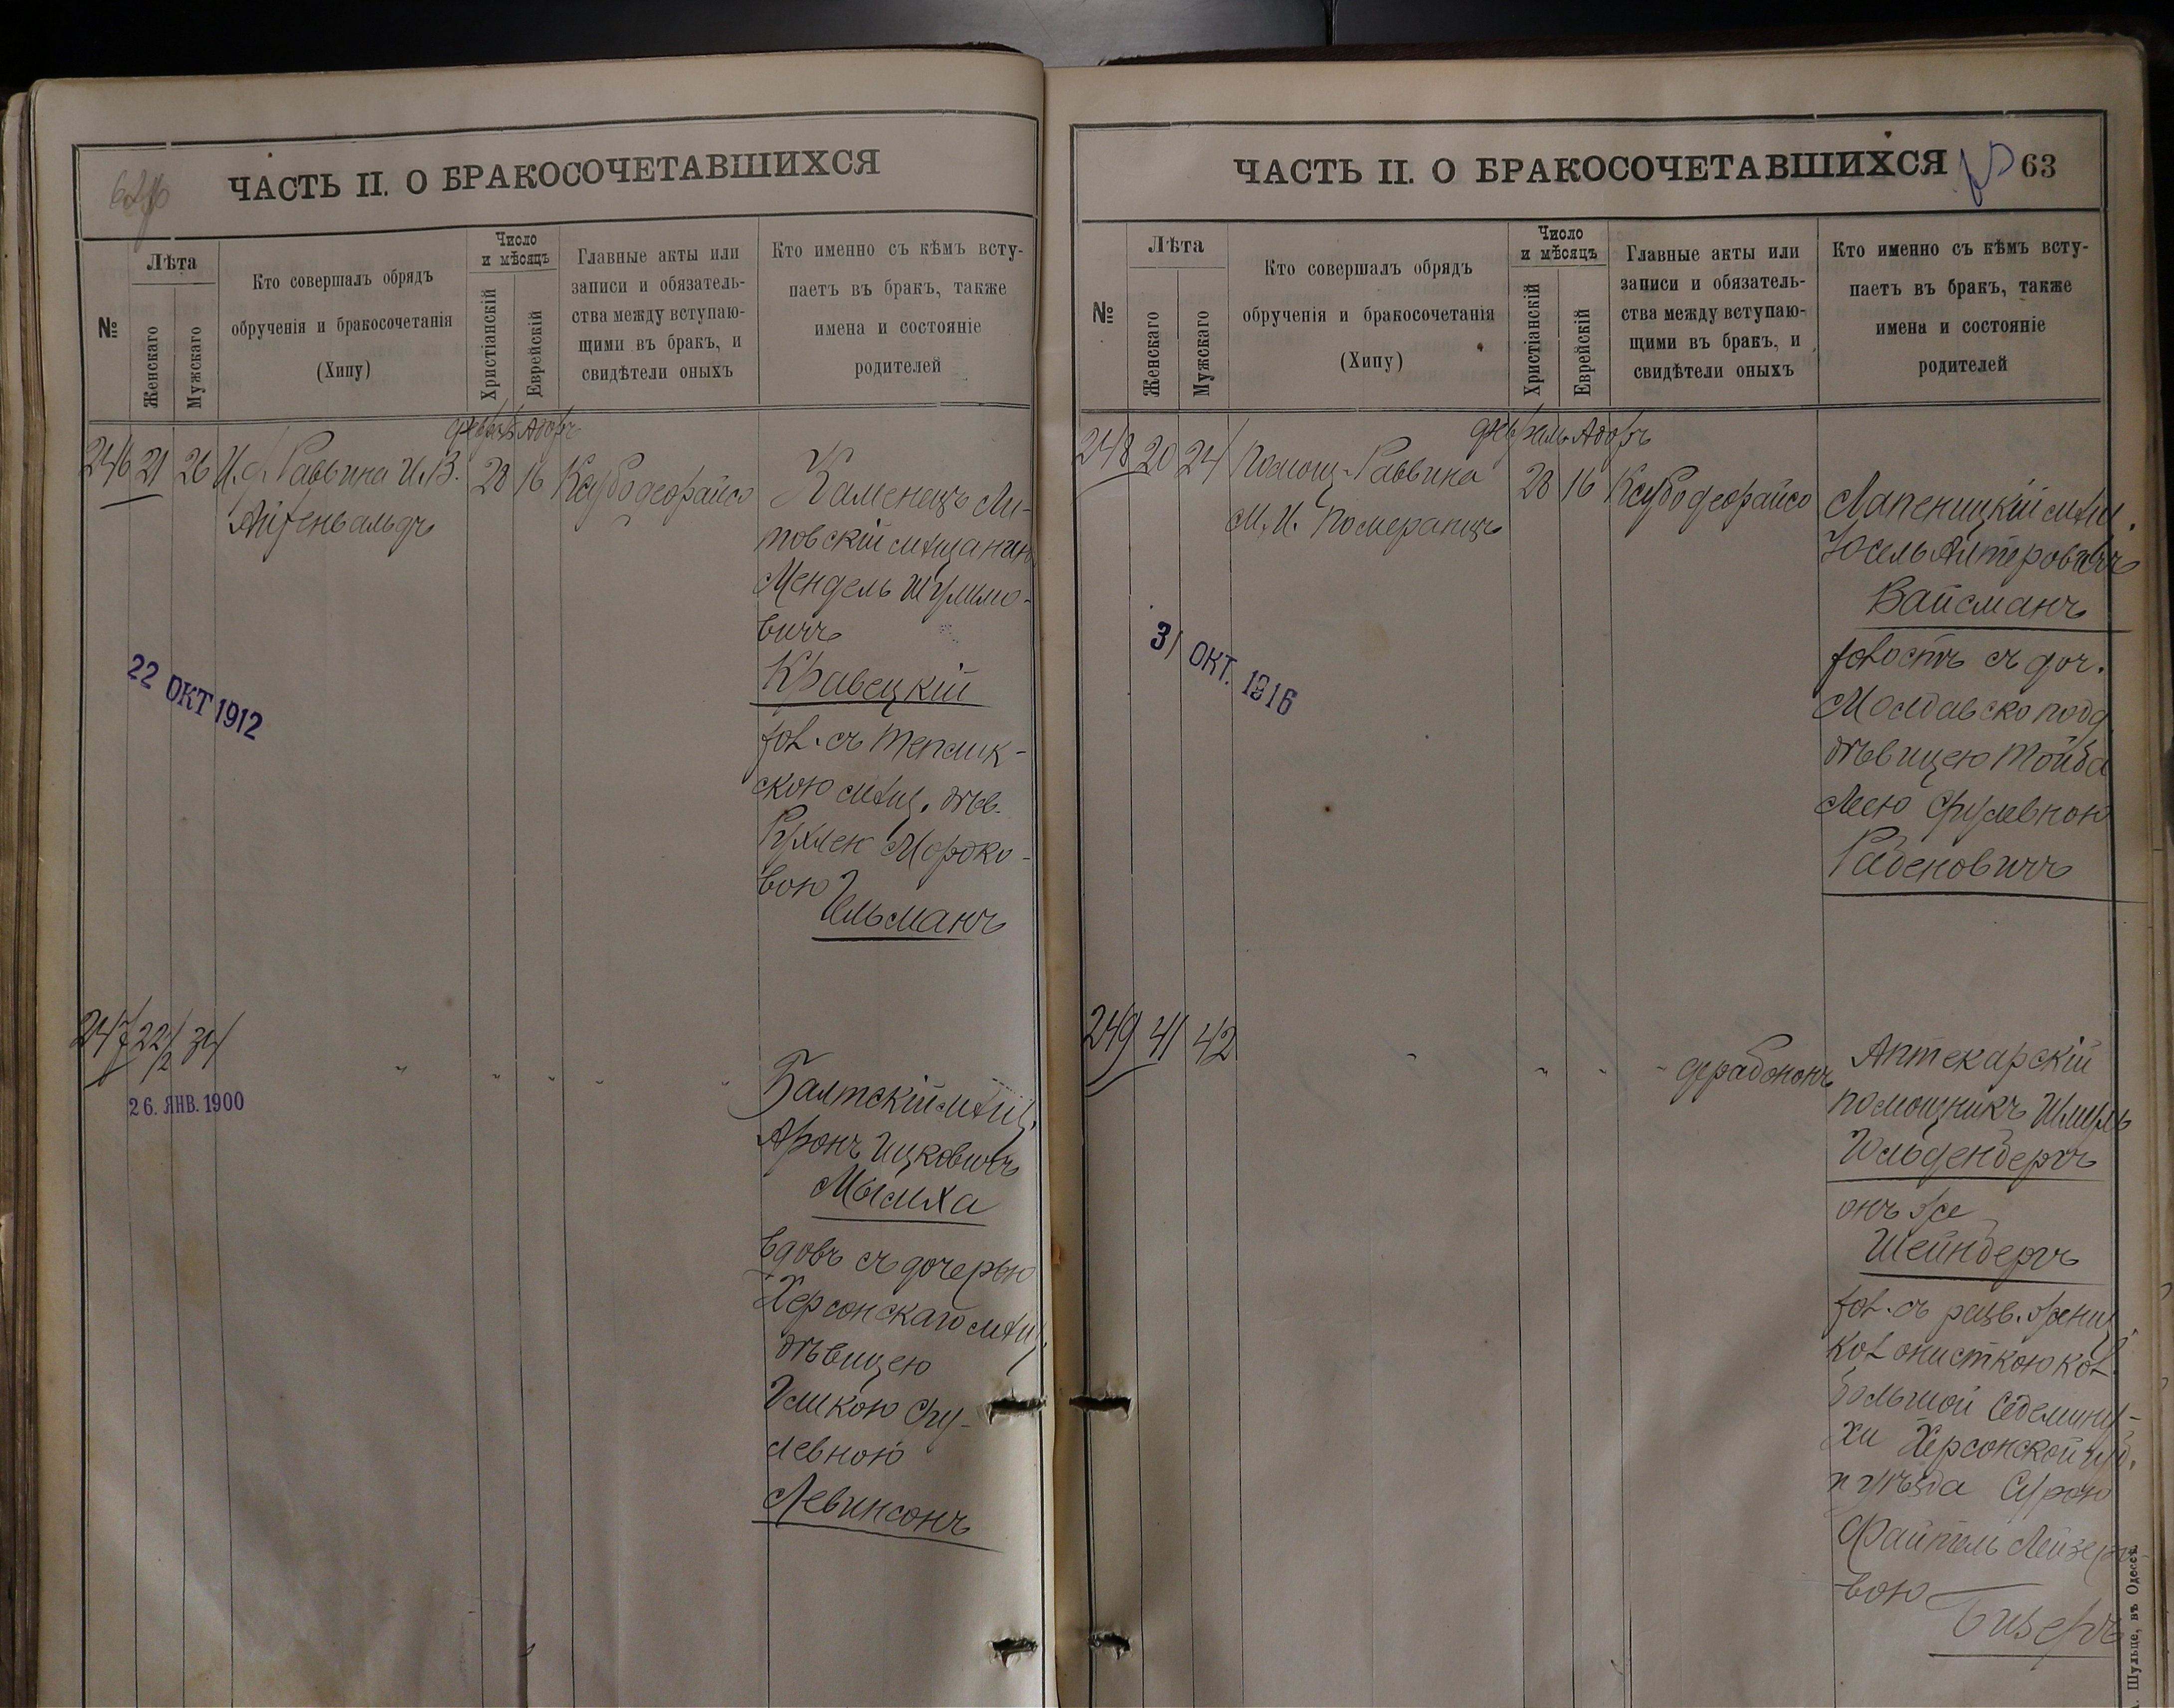 ЧАСТЬ II. О БРАКОСОЧЕТАВШИХСЯ
№
Лѣта
Женскаго
Мужскаго
Кто совершалъ обрядъ
обрученія и бракосочетанія
(Хипу)
Число
и мѣсяцъ
Христіанскій
Еврейскій
Главные акты или
записи и обязатель-
ства между вступаю-
щими въ бракъ, и
свидѣтели оныхъ
Кто именно съ кѣмъ всту-
паетъ въ бракъ, также
имена и состояніе
родителей
февраль Адоръ
246 21 26 И.д. Раввина И.В. 28 16 Ксубодеорайсо
Айзенвальдъ
Каменецъ Ли-
товскій мѣщанинъ
Мендель Шулимо-
вичъ
Кравецкій
хол. съ Теплик-
скою мѣщ. дѣв.
Рухлею Мордко-
вою
Гельманъ
22 ОКТ 1912
247 22 1/2 34 " " " " "
26. ЯНВ. 1900
Балтскій мѣщ.
Аронъ Ицковичъ
Мысиха
вдовъ съ дочерью
Херсонскаго мѣщ.
дѣвицею
Сру-
левною
Левинсонъ
ЧАСТЬ II. О БРАКОСОЧЕТАВШИХСЯ
63
№
Лѣта
Женскаго
Мужскаго
Кто совершалъ обрядъ
обрученія и бракосочетанія
(Хипу)
Число
и мѣсяцъ
Христіанскій
Еврейскій
Главные акты или
записи и обязатель-
ства между вступаю-
щими въ бракъ, и
свидѣтели оныхъ
Кто именно съ кѣмъ всту-
паетъ въ бракъ, также
имена и состояніе
родителей
февраль Адоръ
248 20 24 Помощ. Раввина 28 16 Ксубодеорайсо
М.И. Померанцъ
мѣщ.
Юсель Алтеровичъ
Вайсманъ
холостъ съ доч.
Молдавско подд.
дѣвицею Тойба
Леею Срулевною
Рабеновичъ
31 ОКТ. 1916
249 41 42 " " " " дерабононъ
Аптекарскій
помощникъ Шмуль
Гольденбергъ
онъ же
Шейнбергъ
хол. съ разв. женщ.
колонисткою кол.
Большой Сейдеминy-
хи Херсонской губ.
и уѣзда Сурою
Файгель Лейзеро-
вою
Гизеръ
Шульце, въ Одессѣ.